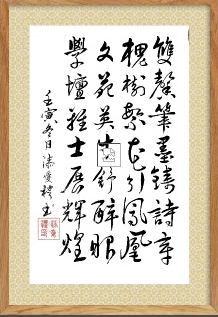 雙馨筆墨鑄詩章
槐樹繁花引鳳凰
文苑英舒醉眼
學壇雅士展輝煌
壬寅冬日